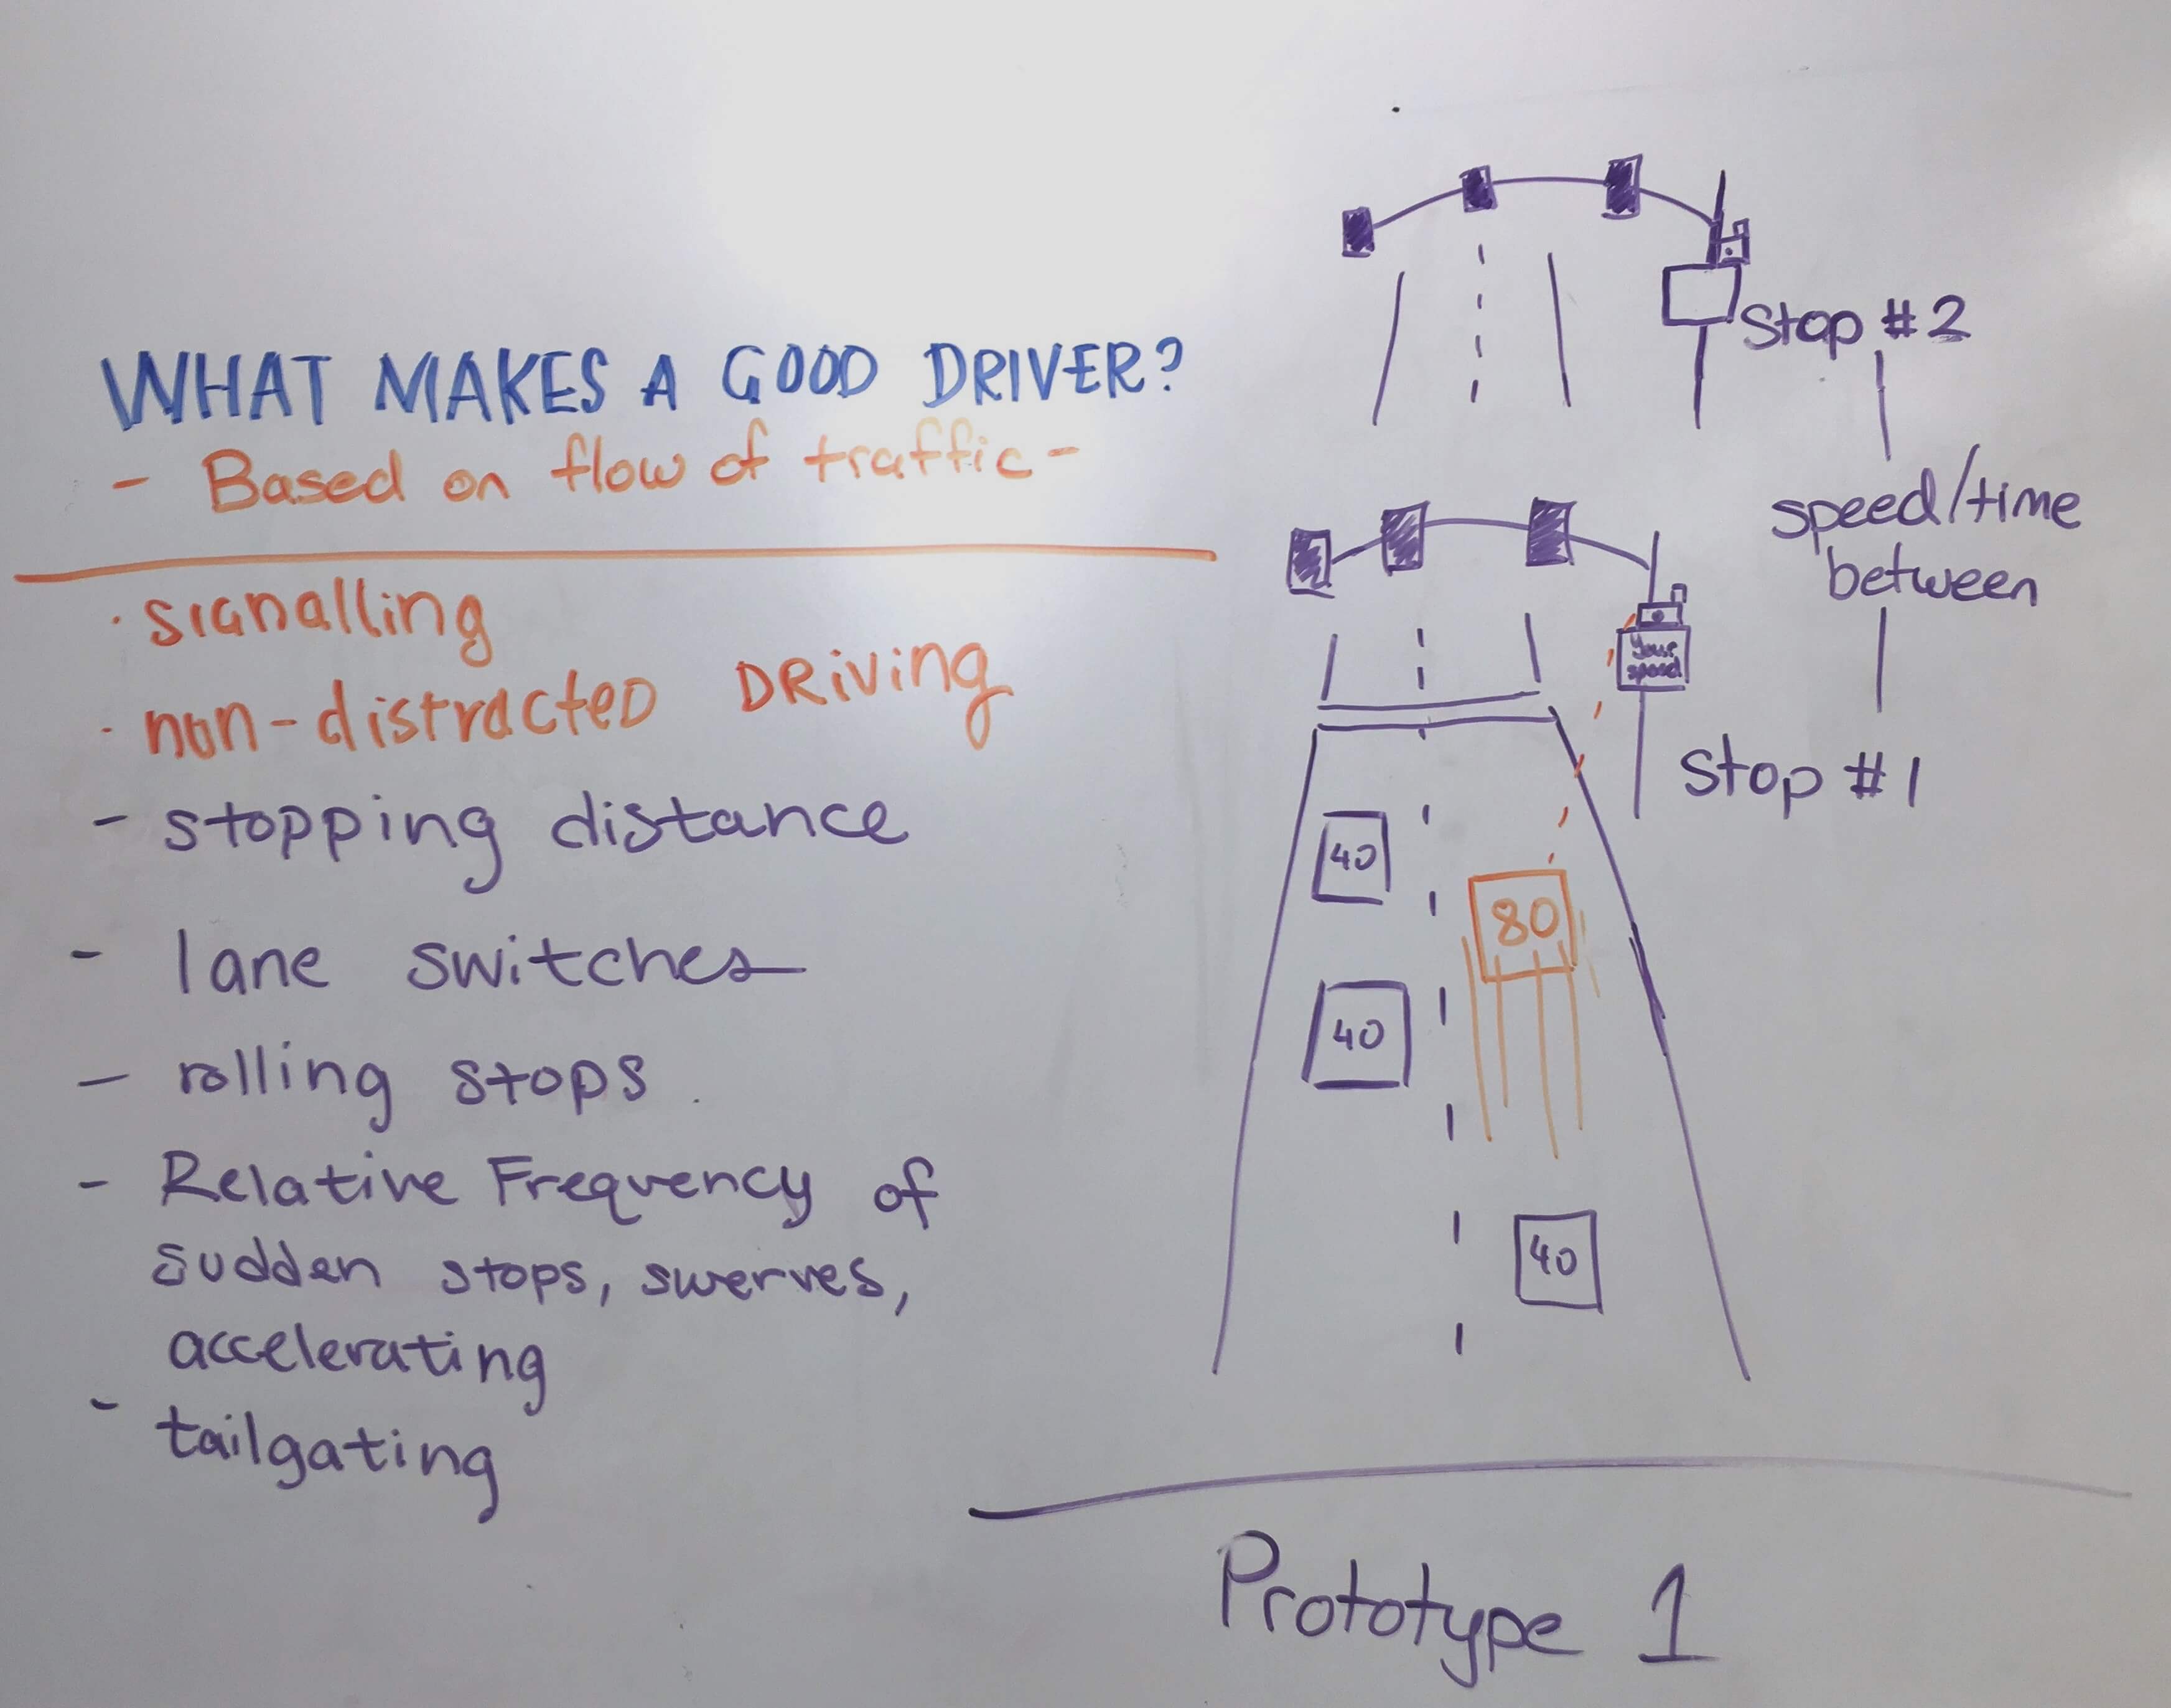 WHAT MAKES A GOOD DRIVER?
- Based on flow of traffic -
· signalling
· non-distracted DRiving
- stopping distance
- lane switches
- rolling stops.
- Relative Frequency of
sudden stops, swerves,
accelerating
- tailgating
Stop #2
speed/time
between
Your
speed
Stop #1
40
80
40
40
Prototype 1